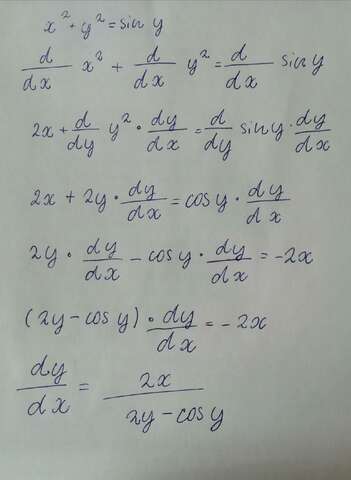 x² + y² = sin y
d/dx x² + d/dx y² = d/dx sin y
2x + d/dy y² · dy/dx = d/dy sin y · dy/dx
2x + 2y · dy/dx = cos y · dy/dx
2y · dy/dx - cos y · dy/dx = -2x
(2y - cos y) · dy/dx = -2x
dy/dx = 2x/(2y - cos y)